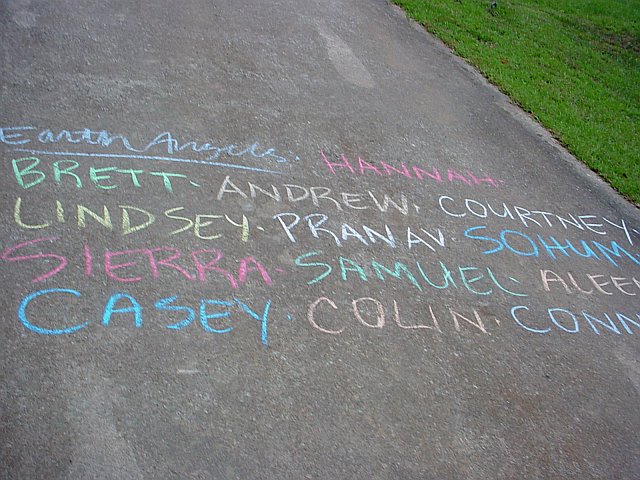 Earth Angels. HANNAH
BRETT · ANDREW · COURTNEY ·
LINDSEY · PRANAV · SOHUM
SIERRA · SAMUEL · ALEE
CASEY · COLIN · CONN